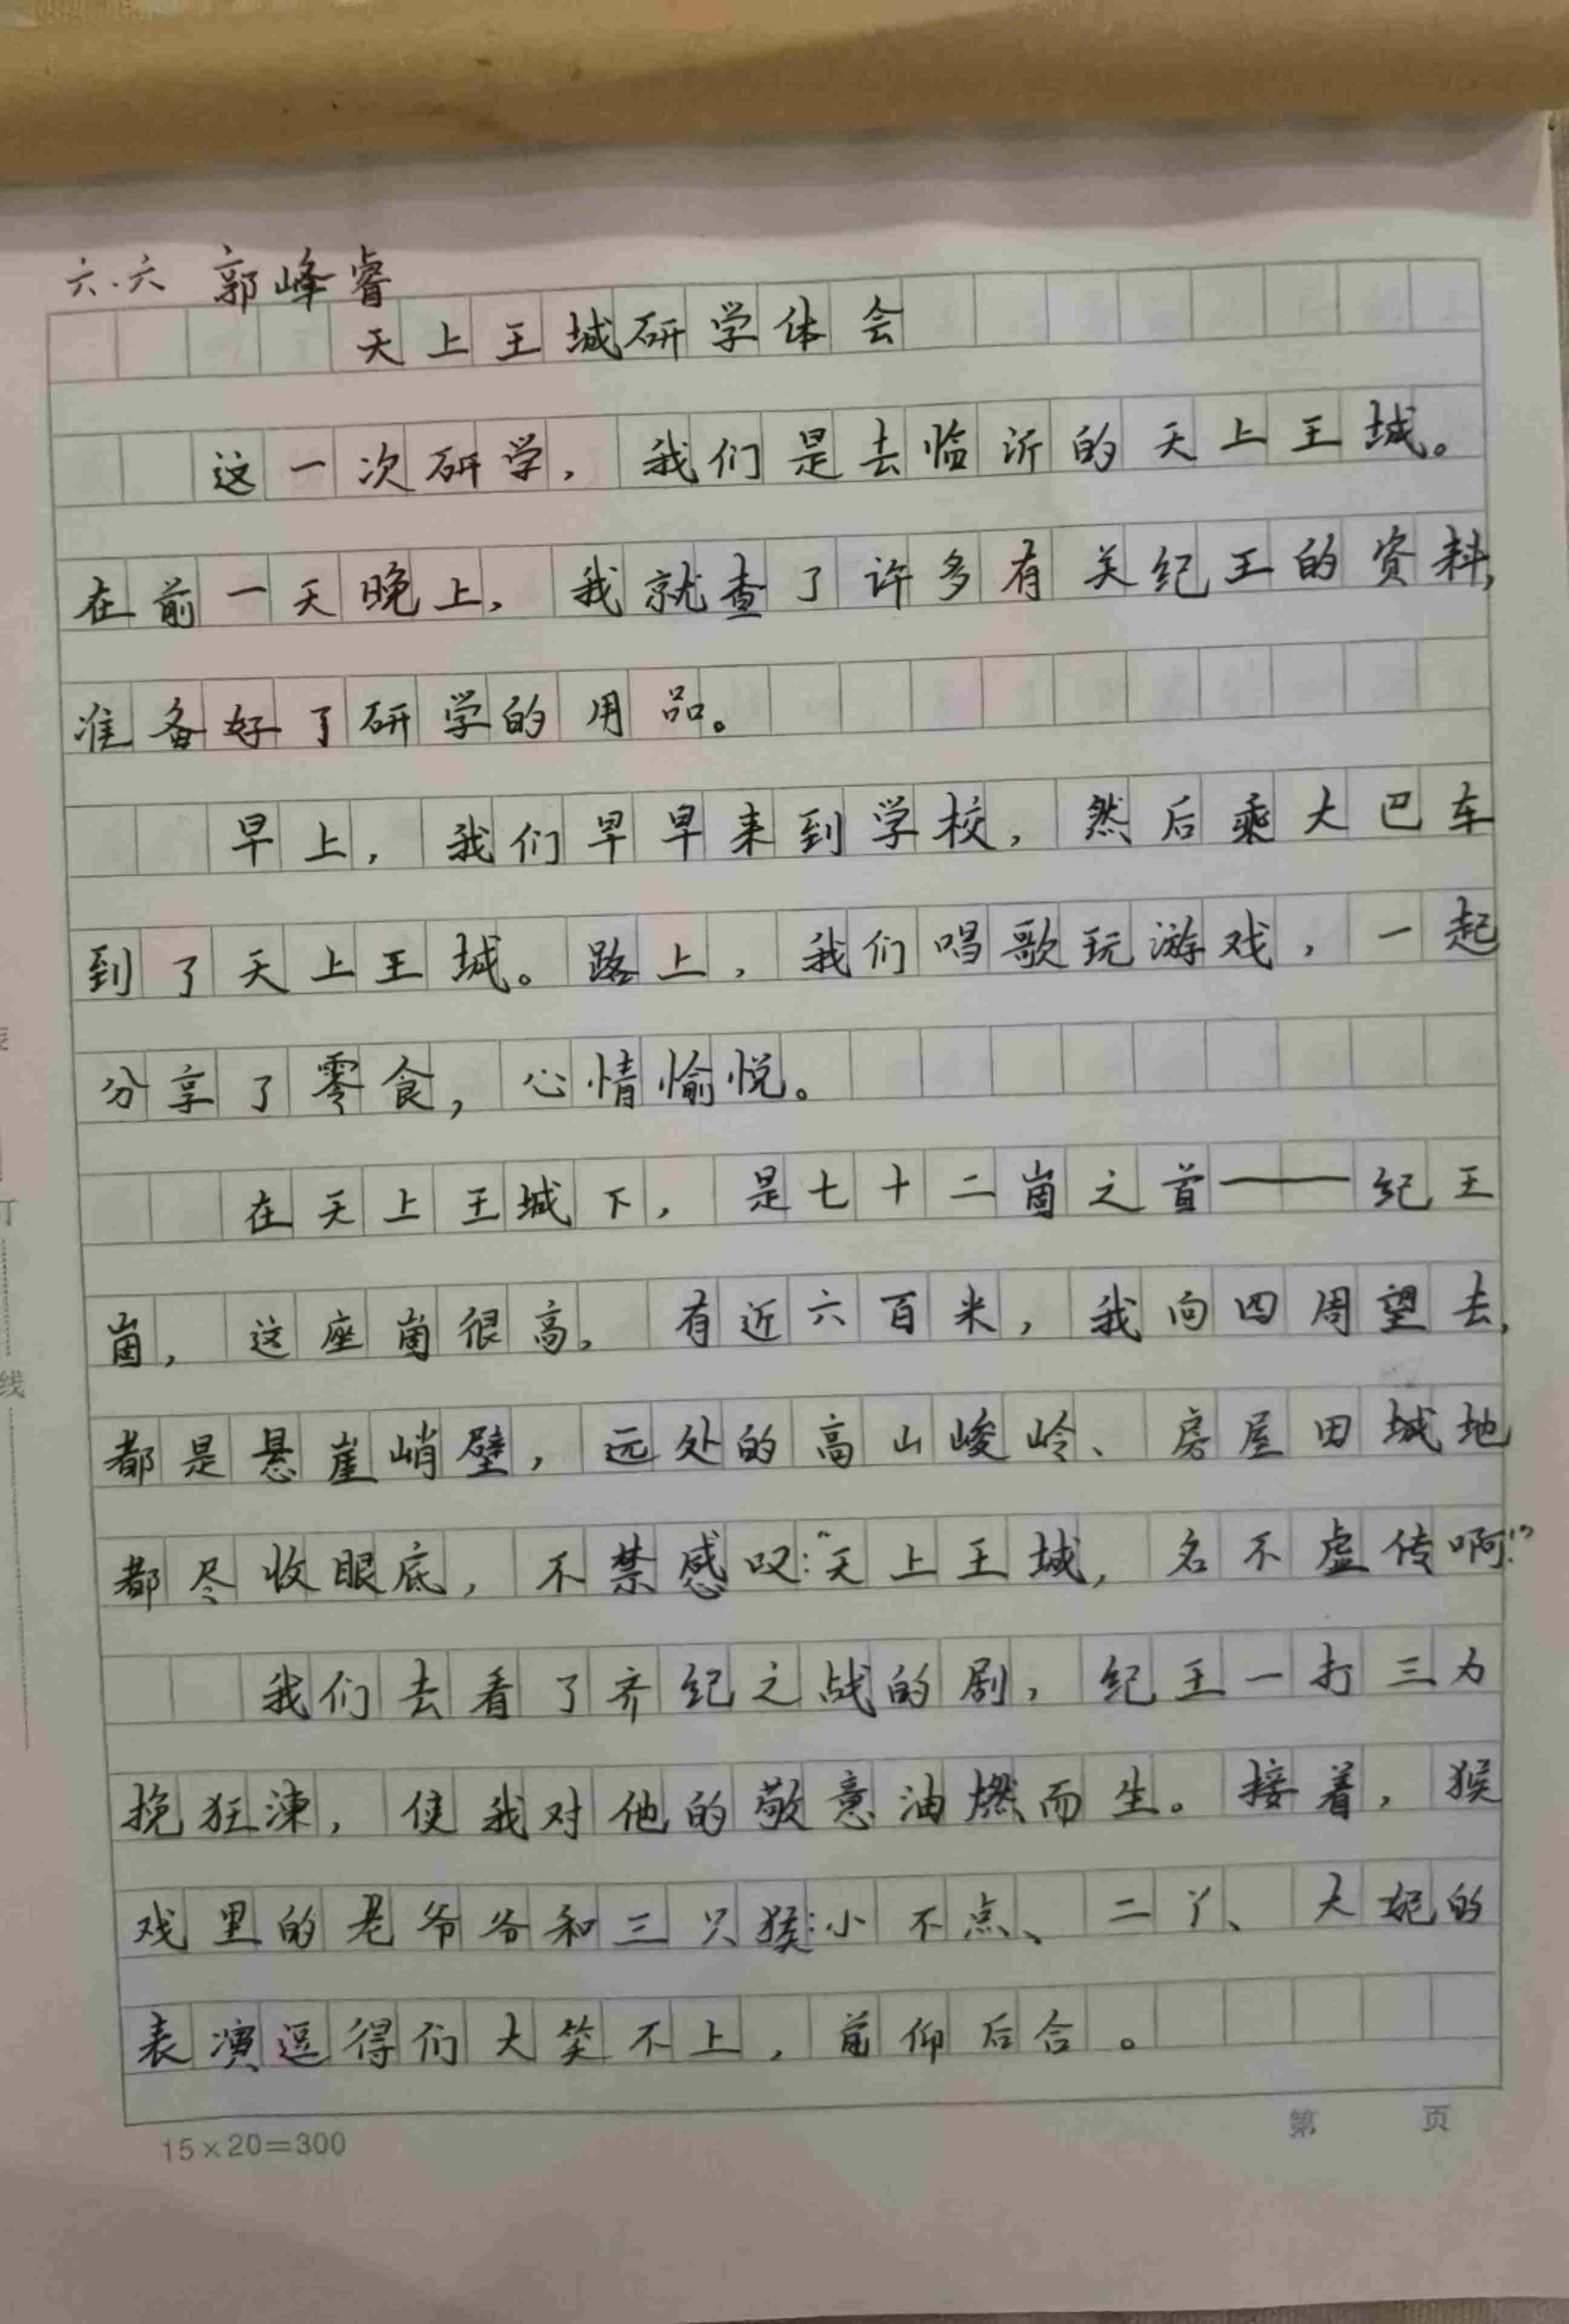 六.六 郭峰睿
天上王城研学体会
这一次研学，我们是去临沂的天上王城。
在前一天晚上，我就查了许多有关纪王的资料，
准备好了研学的用品。
早上，我们早早来到学校，然后乘大巴车
到了天上王城。路上，我们唱歌玩游戏，一起
分享了零食，心情愉悦。
在天上王城下，是七十二崮之首——纪王
崮，这座崮很高，有近六百米，我向四周望去，
都是悬崖峭壁，远处的高山峻岭、房屋田城地
都尽收眼底，不禁感叹：“天上王城，名不虚传啊！”
我们去看了齐纪之战的剧，纪王一打三力
挽狂涑，使我对他的敬意油燃而生。接着，猴
戏里的老爷爷和三只猴：小不点、二丫、大妮的
表演逗得们大笑不上，前仰后合。
15×20=300
第 页
订
线